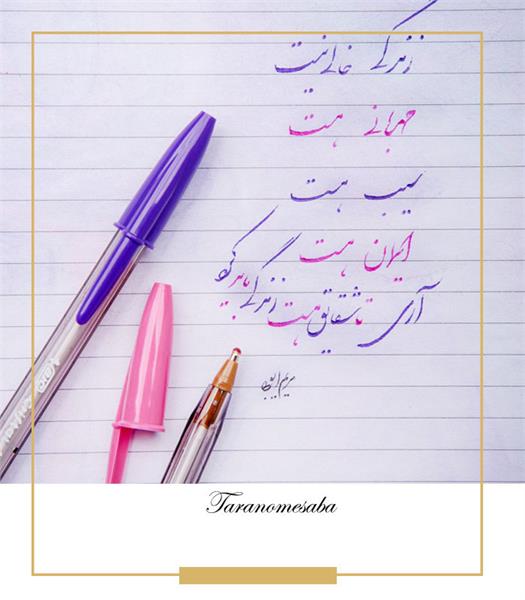 زندگی خالی نیست
مهربانی هست
سیب هست
ایمان هست
آری تا شقایق هست زندگی باید کرد
مریم
Taranomesaba